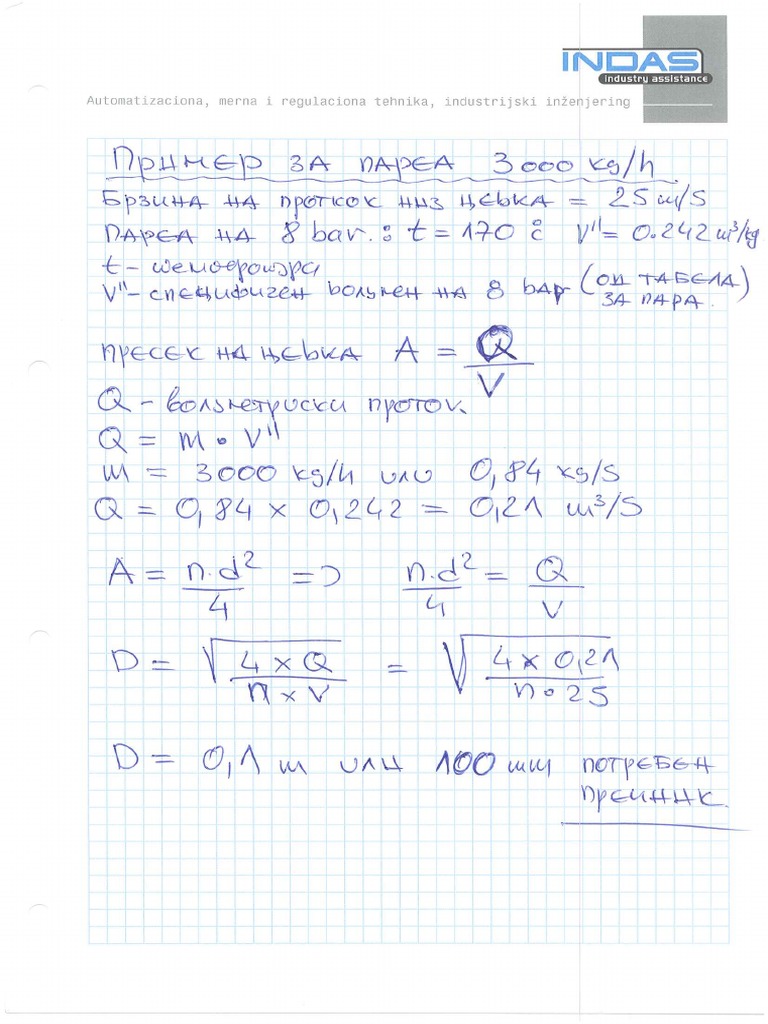 INDAS
industry assistance
Automatizaciona, merna i regulaciona tehnika, industrijski inženjering
Пример за пареа 3000 kg/h.
Брзина на проткок низ цевка = 25 m/s
Пареа на 8 bar. : t = 170 °C V" = 0.242 m³/kg
t - 
V" - специфичен волумен на 8 bar (од табела за пара.)
Пресек на цевка A = Q/V
Q - волуметриски проток.
Q = m • V"
m = 3000 kg/h или 0,84 kg/s
Q = 0,84 x 0,242 = 0,21 m³/s
A = π.d²/4 => π.d²/4 = Q/V
D = √(4 x Q / π x V) = √(4 x 0,21 / π • 25)
D = 0,1 m или 100 mm потребен